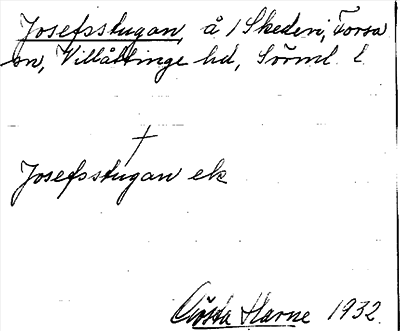 Josefsstugan, å /Skeden, Forssa
sn, Villåttinge hd, Sörml. l
Josefsstugan ek
Gösta Harne 1932.